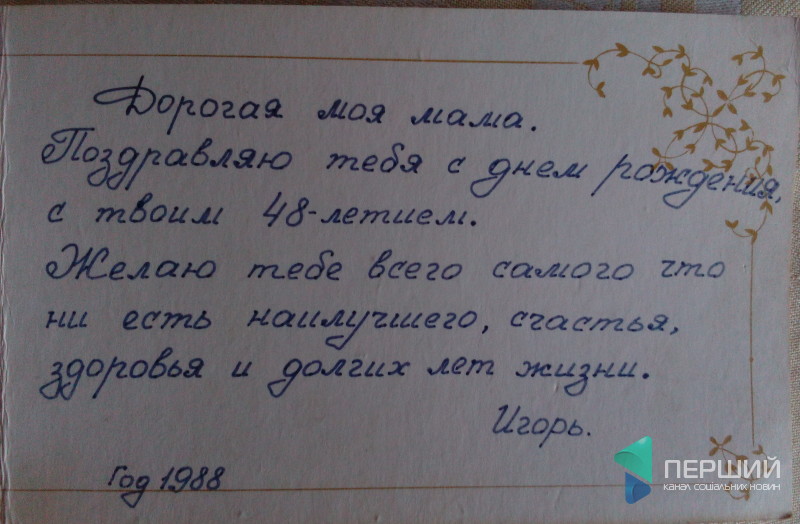 Дорогая моя мама.
Поздравляю тебя с днем рождения,
с твоим 48-летием.
Желаю тебе всего самого что
ни есть наилучшего, счастья,
здоровья и долгих лет жизни.
Игорь.
Год 1988
ПЕРШИЙ
КАНАЛ СОЦІАЛЬНИХ НОВИН